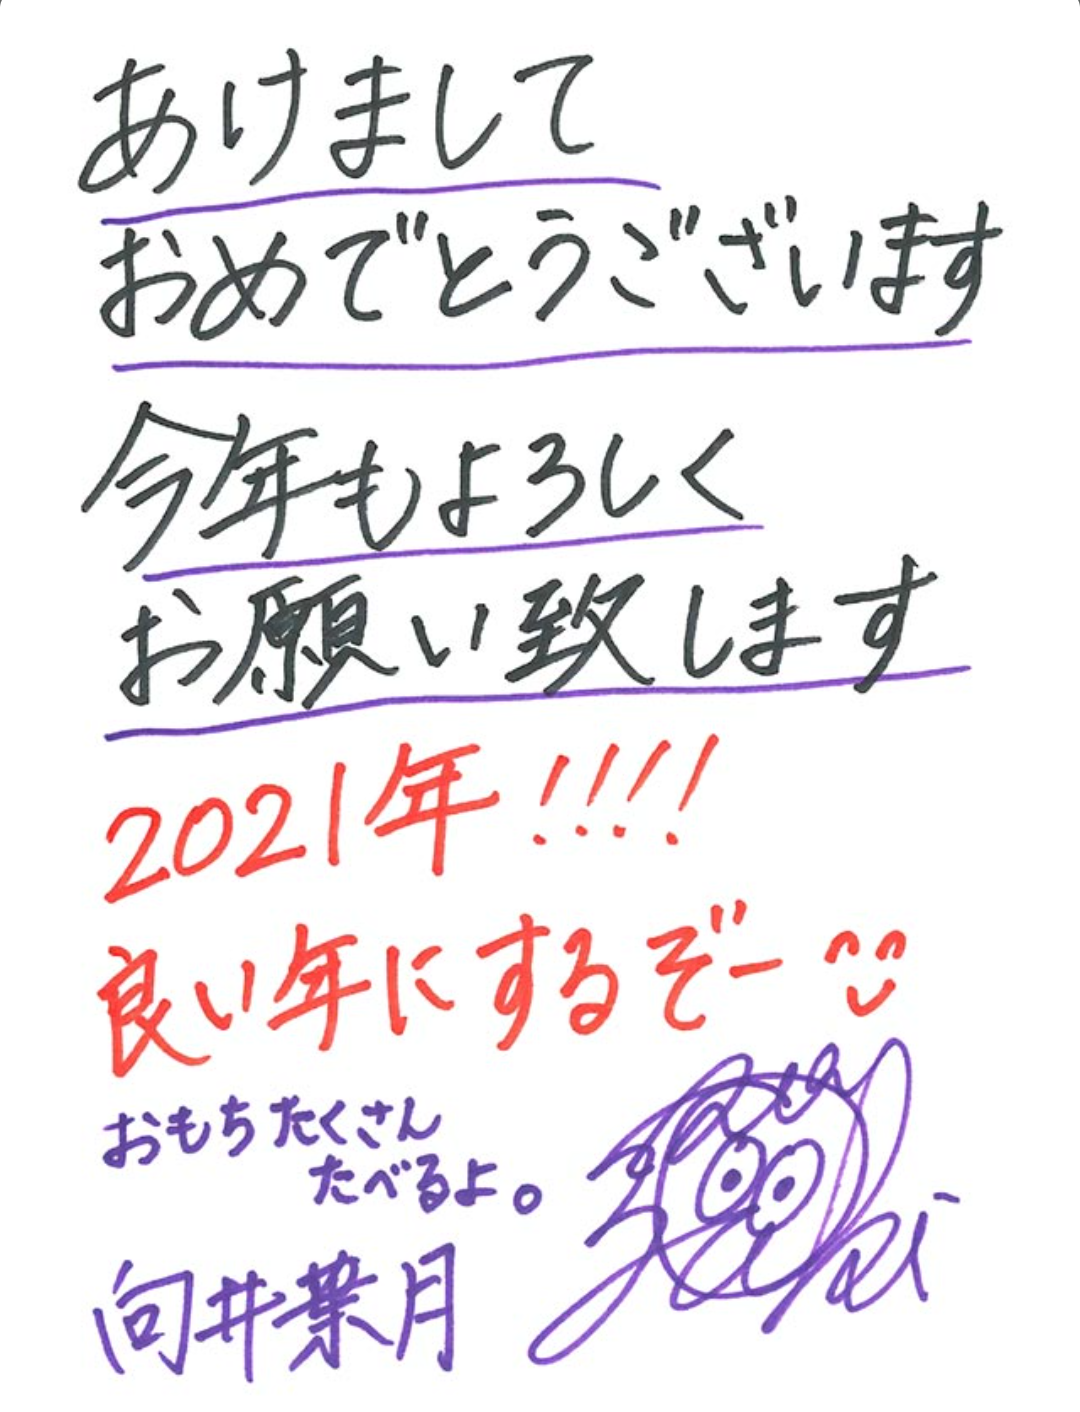 あけまして
おめでとうございます
今年もよろしく
お願い致します
2021年!!!!
良い年にするぞー
おもちたくさん
たべるよ。
向井葉月